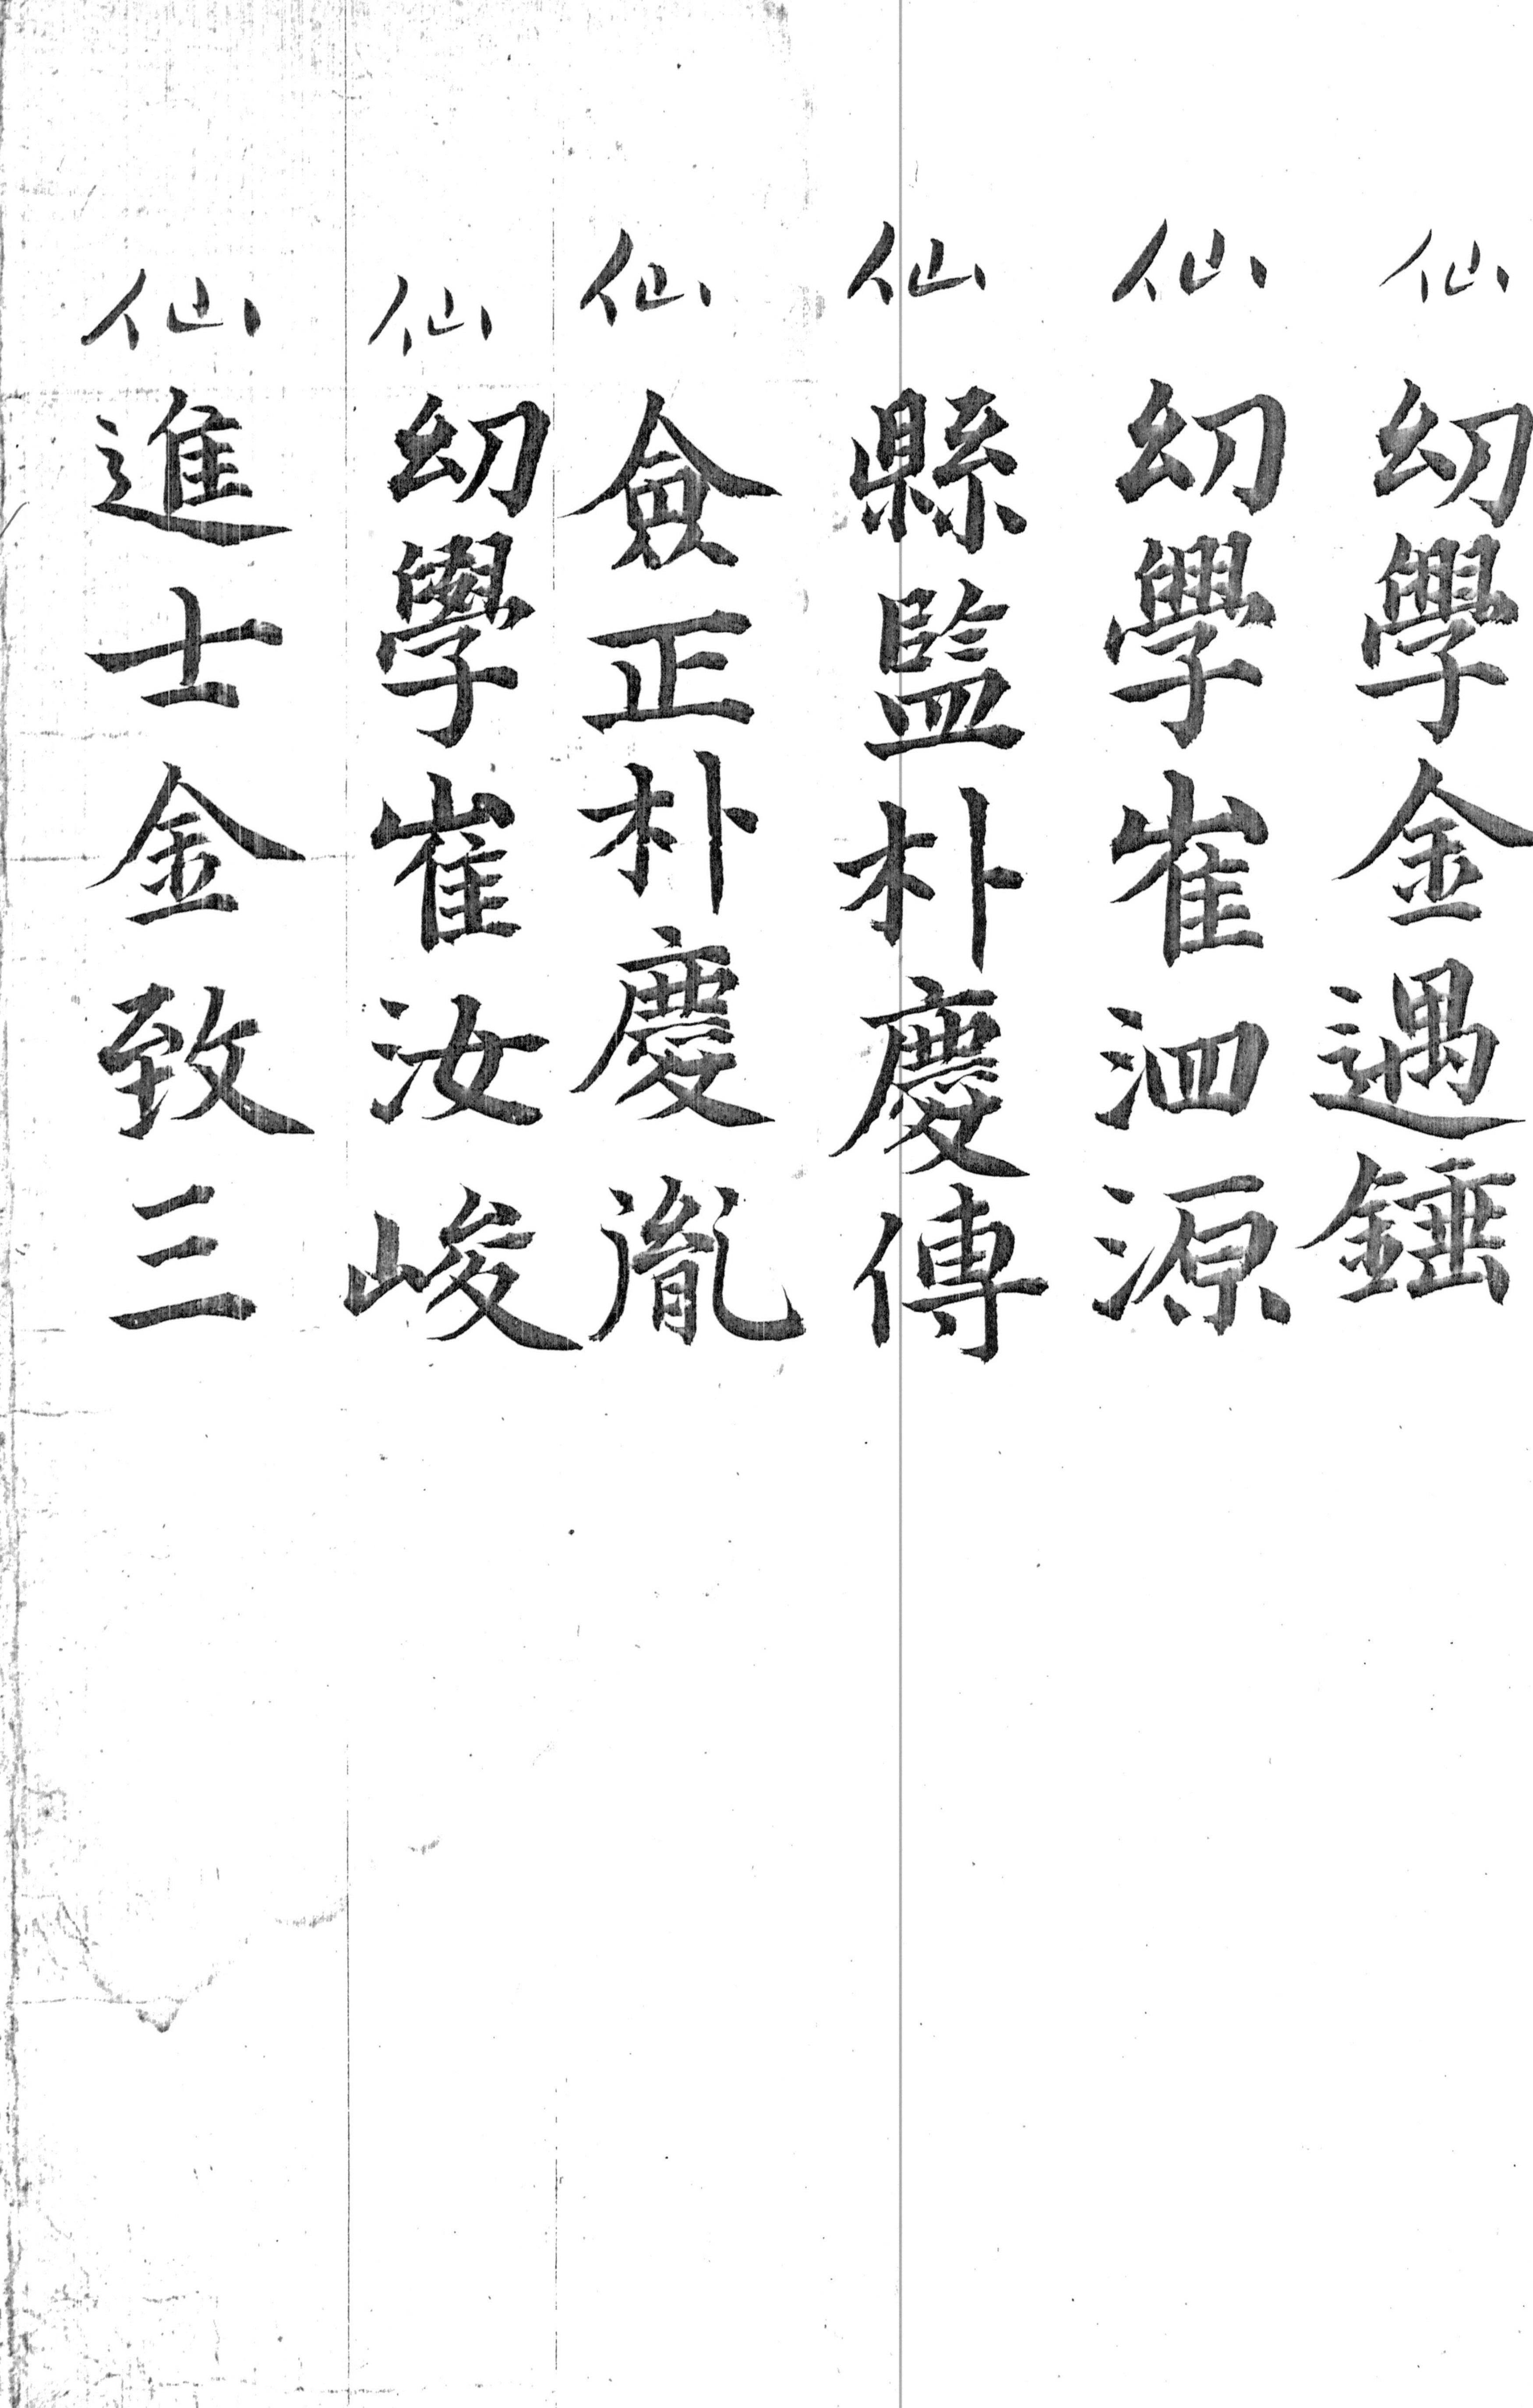 仙 幼學金遇錘
仙 幼學崔泗源
仙 縣監朴慶傳
仙 僉正朴慶胤
仙 幼學崔汝峻
仙 進士金致三